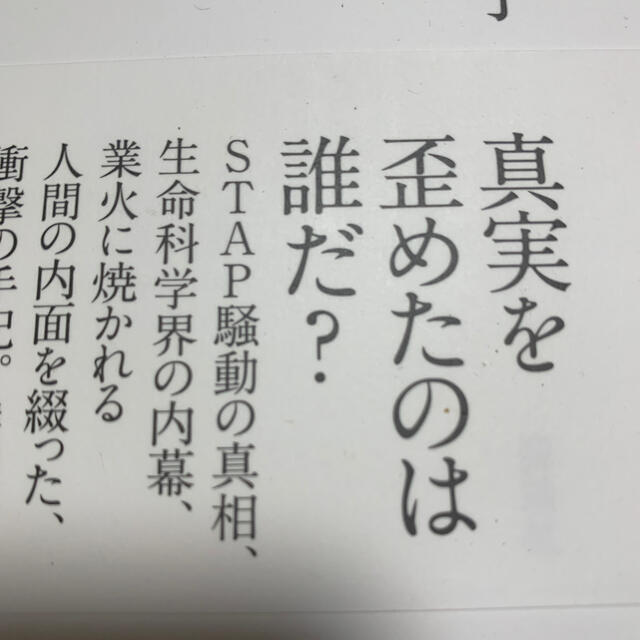 真実を
歪めたのは
誰だ?
STAP騒動の真相、
生命科学界の内幕、
業火に焼かれる
人間の内面を綴った、
衝撃の手記。